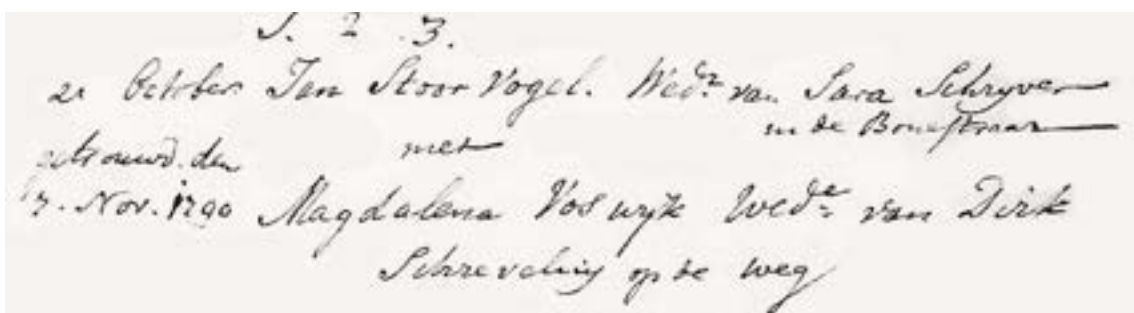 J. 2. 3.
21 October Jan Stoor Vogel. Wedr. van Sara Schryver
in de
met
getrouwd den
7. Nov. 1790 Magdalena Voswyk Wede. van Dirk
op de weg